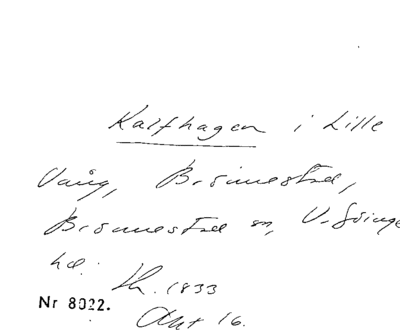 Kalfhagen i Lille
Vång, Brömestad,
Brömestad sn, V. Göinge
hd. Lh. 1833
Akt 16.
Nr 8022.